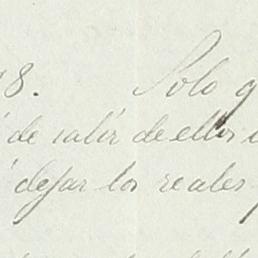 8. Solo q
de salir de ellos
dejar los reales